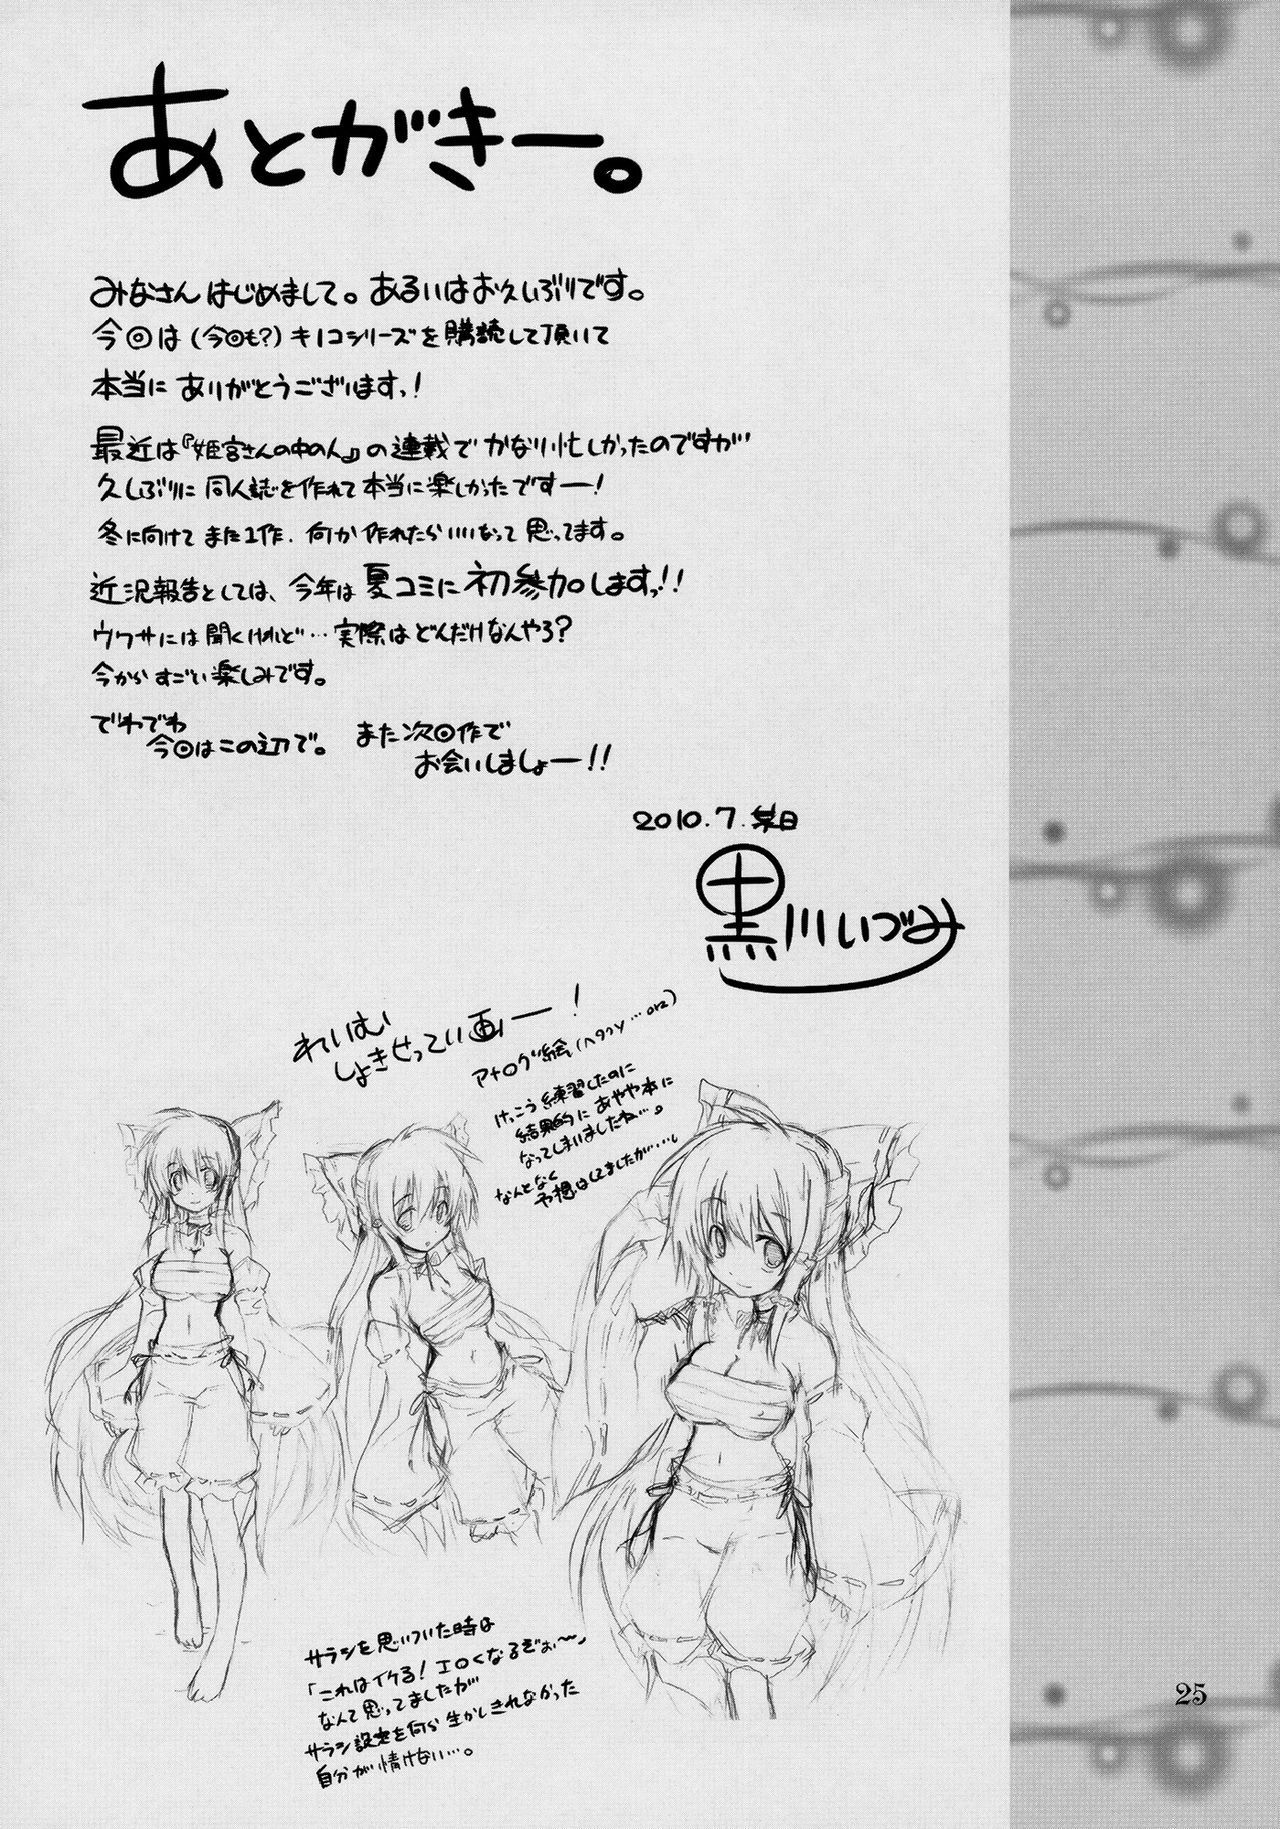 あとがきー。
みなさん はじめまして。あるいはお久しぶりです。
今回は(今回も?)キノコシリーズを購読して頂いて
本当に ありがとうございますっ!
最近は『姫宮さんの中の人』の連載で かなり忙しかったのですが
久しぶりに 同人誌を作れて本当に楽しかったですー!
冬に向けて また1作、何か作れたらいいなって思ってます。
近況報告としては、今年は夏コミに初参加しますっ!!
ウワサには聞くけれど…実際はどんだけなんやろ?
今からすごい楽しみです。
でわでわ
今回はこの辺で。 また次回作で
お会いしましょー!!
2010.7.某日
黒川いづみ
れいむ
しょきせってい画ー!
アナログ絵(ヘタクソ…orz)
けっこう練習したのに
結果的に あやや本に
なってしまいましたね…。
なんとなく
予想はしてましたが…
サラシを思いついた時は
「これはイケる!エロくなるぞぉ〜」
なんて思ってましたが
サラシ設定を何ら生かしきれなかった
自分が情けない…。
25